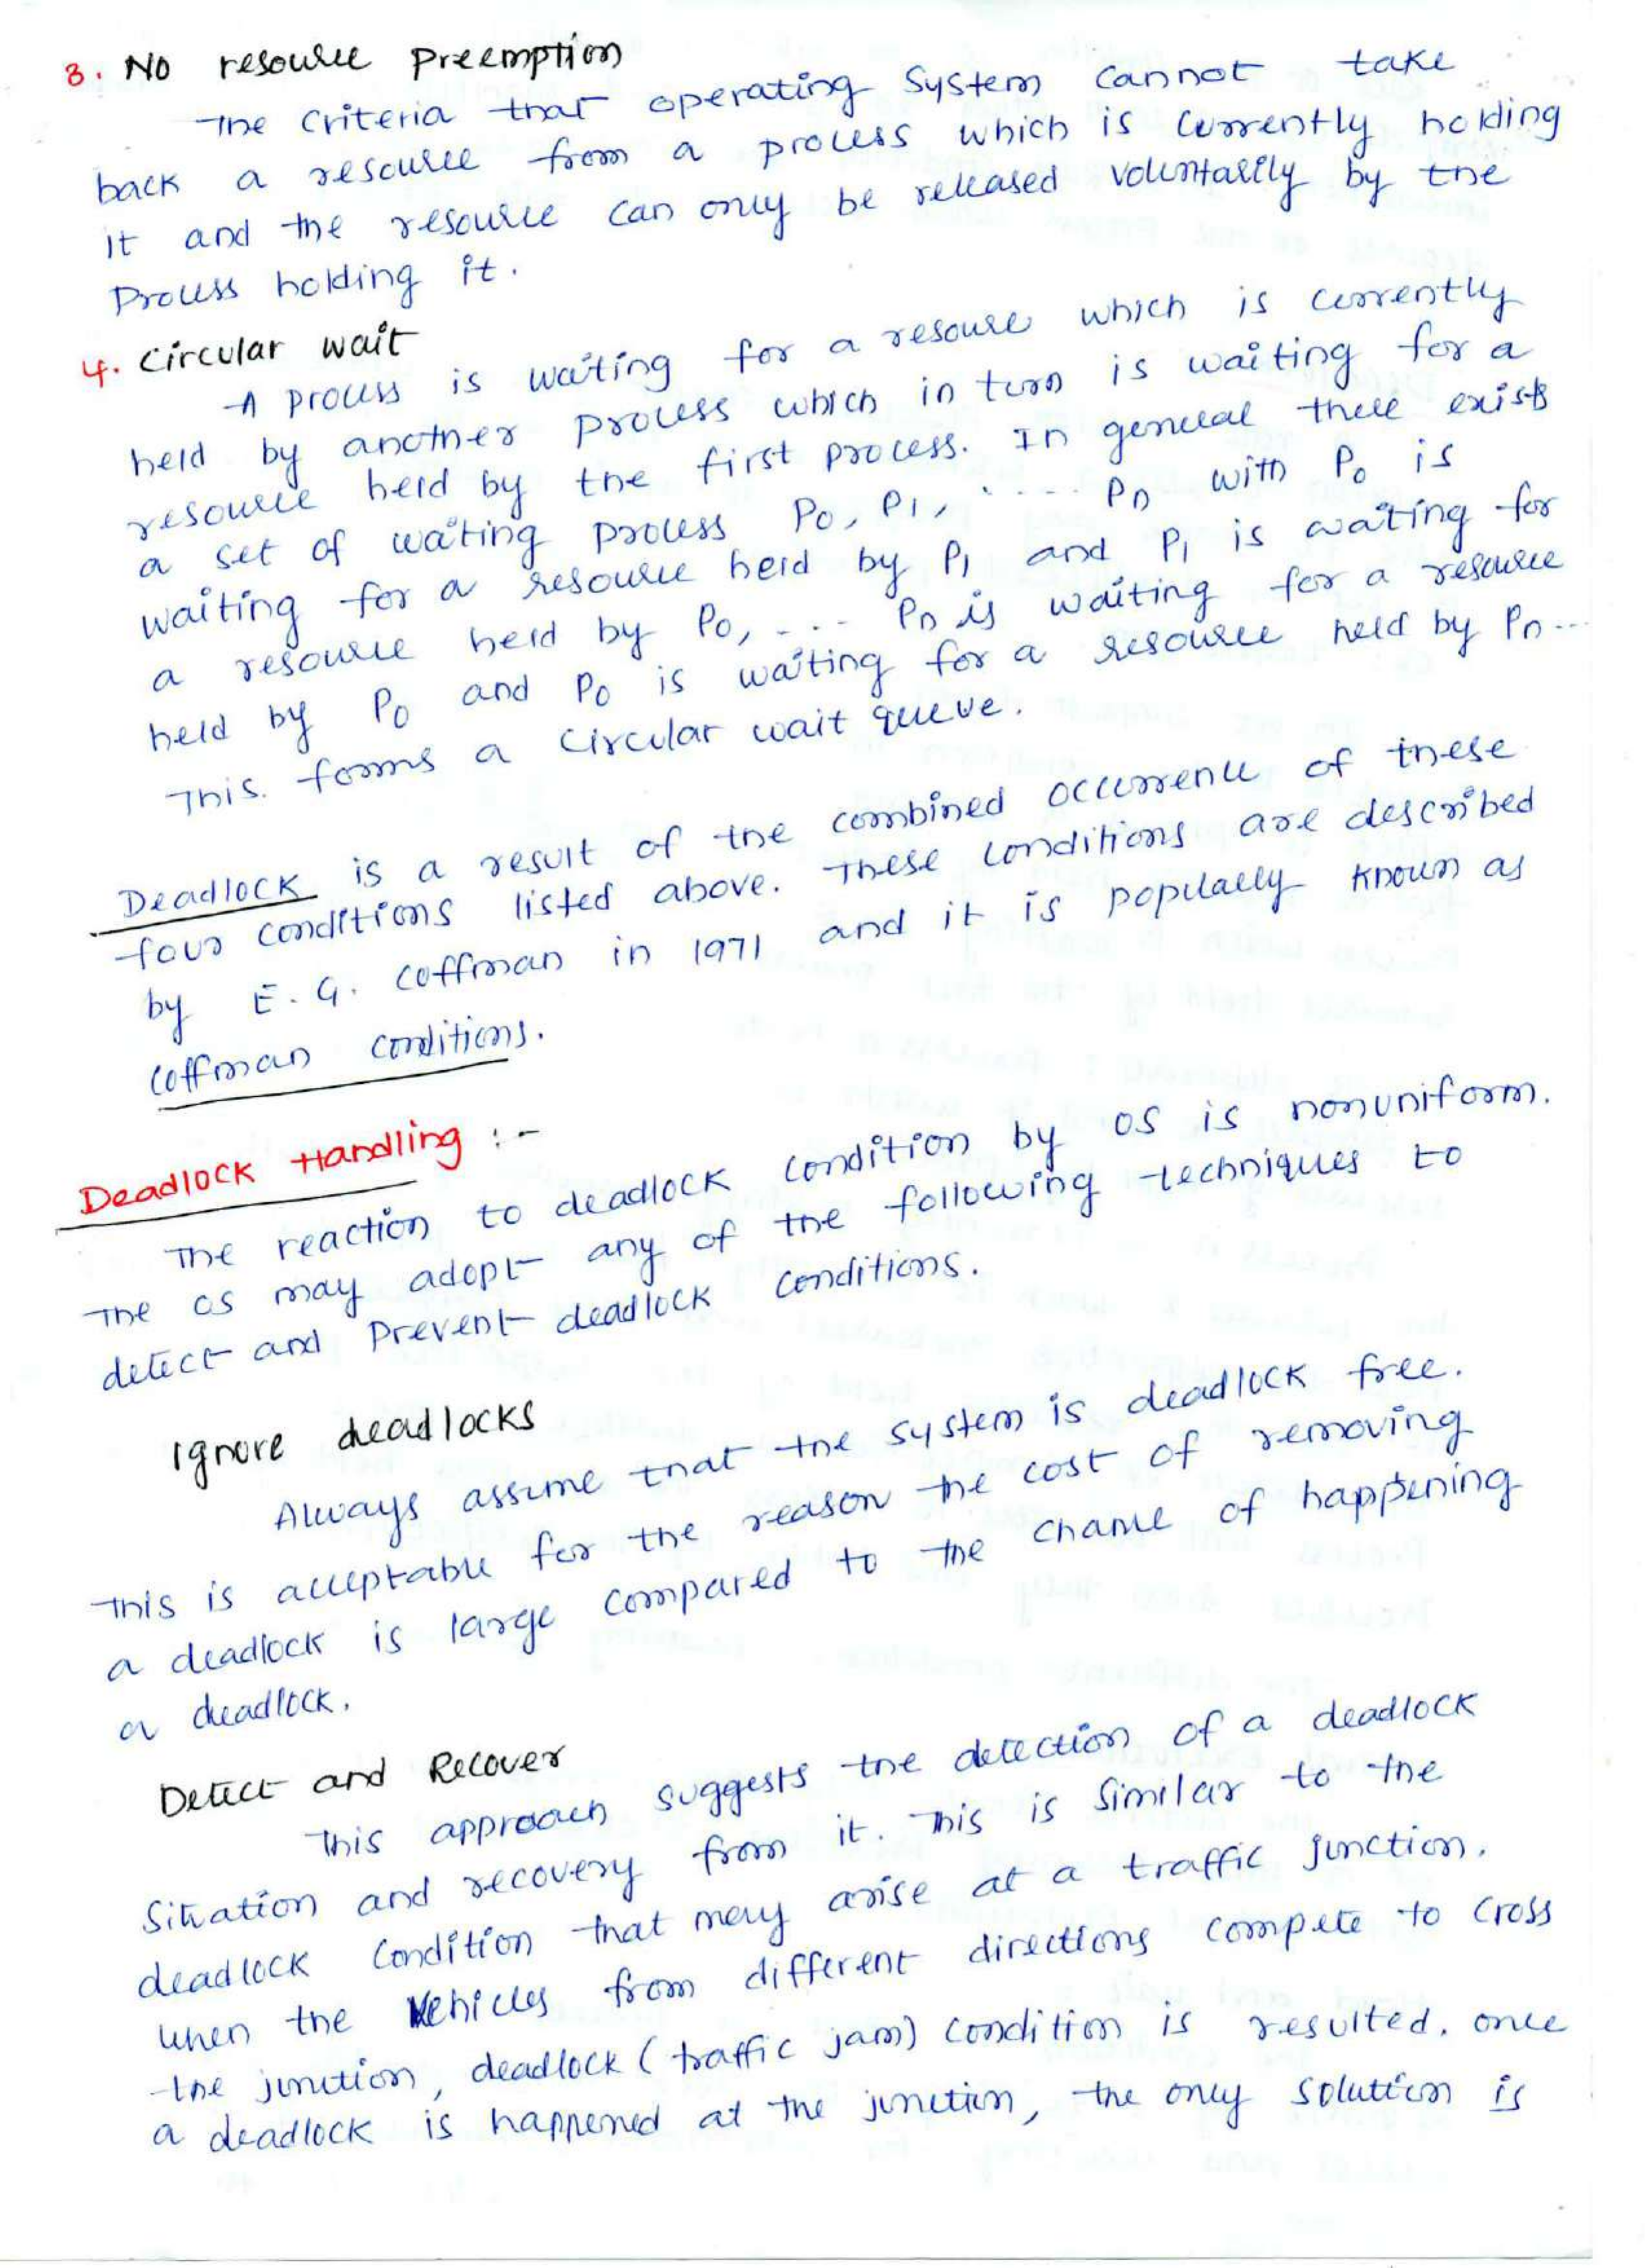 3. No resource Preemption
The criteria that operating System cannot take
back a resource from a process which is currently holding
it and the resource can only be released voluntarily by the
Process holding it.
4. Circular wait
A process is waiting for a resoure which is currently
held by another process which in turn is waiting for a
resource held by the first process. In general there exists
a set of waiting process P0, P1, .... Pn with P0 is
waiting for a resource held by P1 and P1 is waiting for
a resource held by P0, ... Pn is waiting for a resource
held by P0 and P0 is waiting for a resource held by Pn...
This. forms a Circular wait queue.
Deadlock is a result of the combined occurrence of these
four conditions listed above. These conditions are described
by E. G. Coffman in 1971 and it is populally known as
Coffman conditions.
Deadlock Handling :-
The reaction to deadlock condition by OS is nonuniform.
The OS may adopt any of the following techniques to
detect and Prevent deadlock conditions.
Ignore deadlocks
Always assume that the system is deadlock free.
This is acceptable for the reason the cost of removing
a deadlock is large compared to the chance of happening
a deadlock.
Detect and Recover
This approach suggests the detection of a deadlock
Situation and recovery from it. This is Similar to the
deadlock Condition that may arise at a traffic junction.
When the Vehicles from different directions compete to cross
the junction, deadlock (traffic jam) condition is resulted. once
a deadlock is happened at the junction, the only solution is